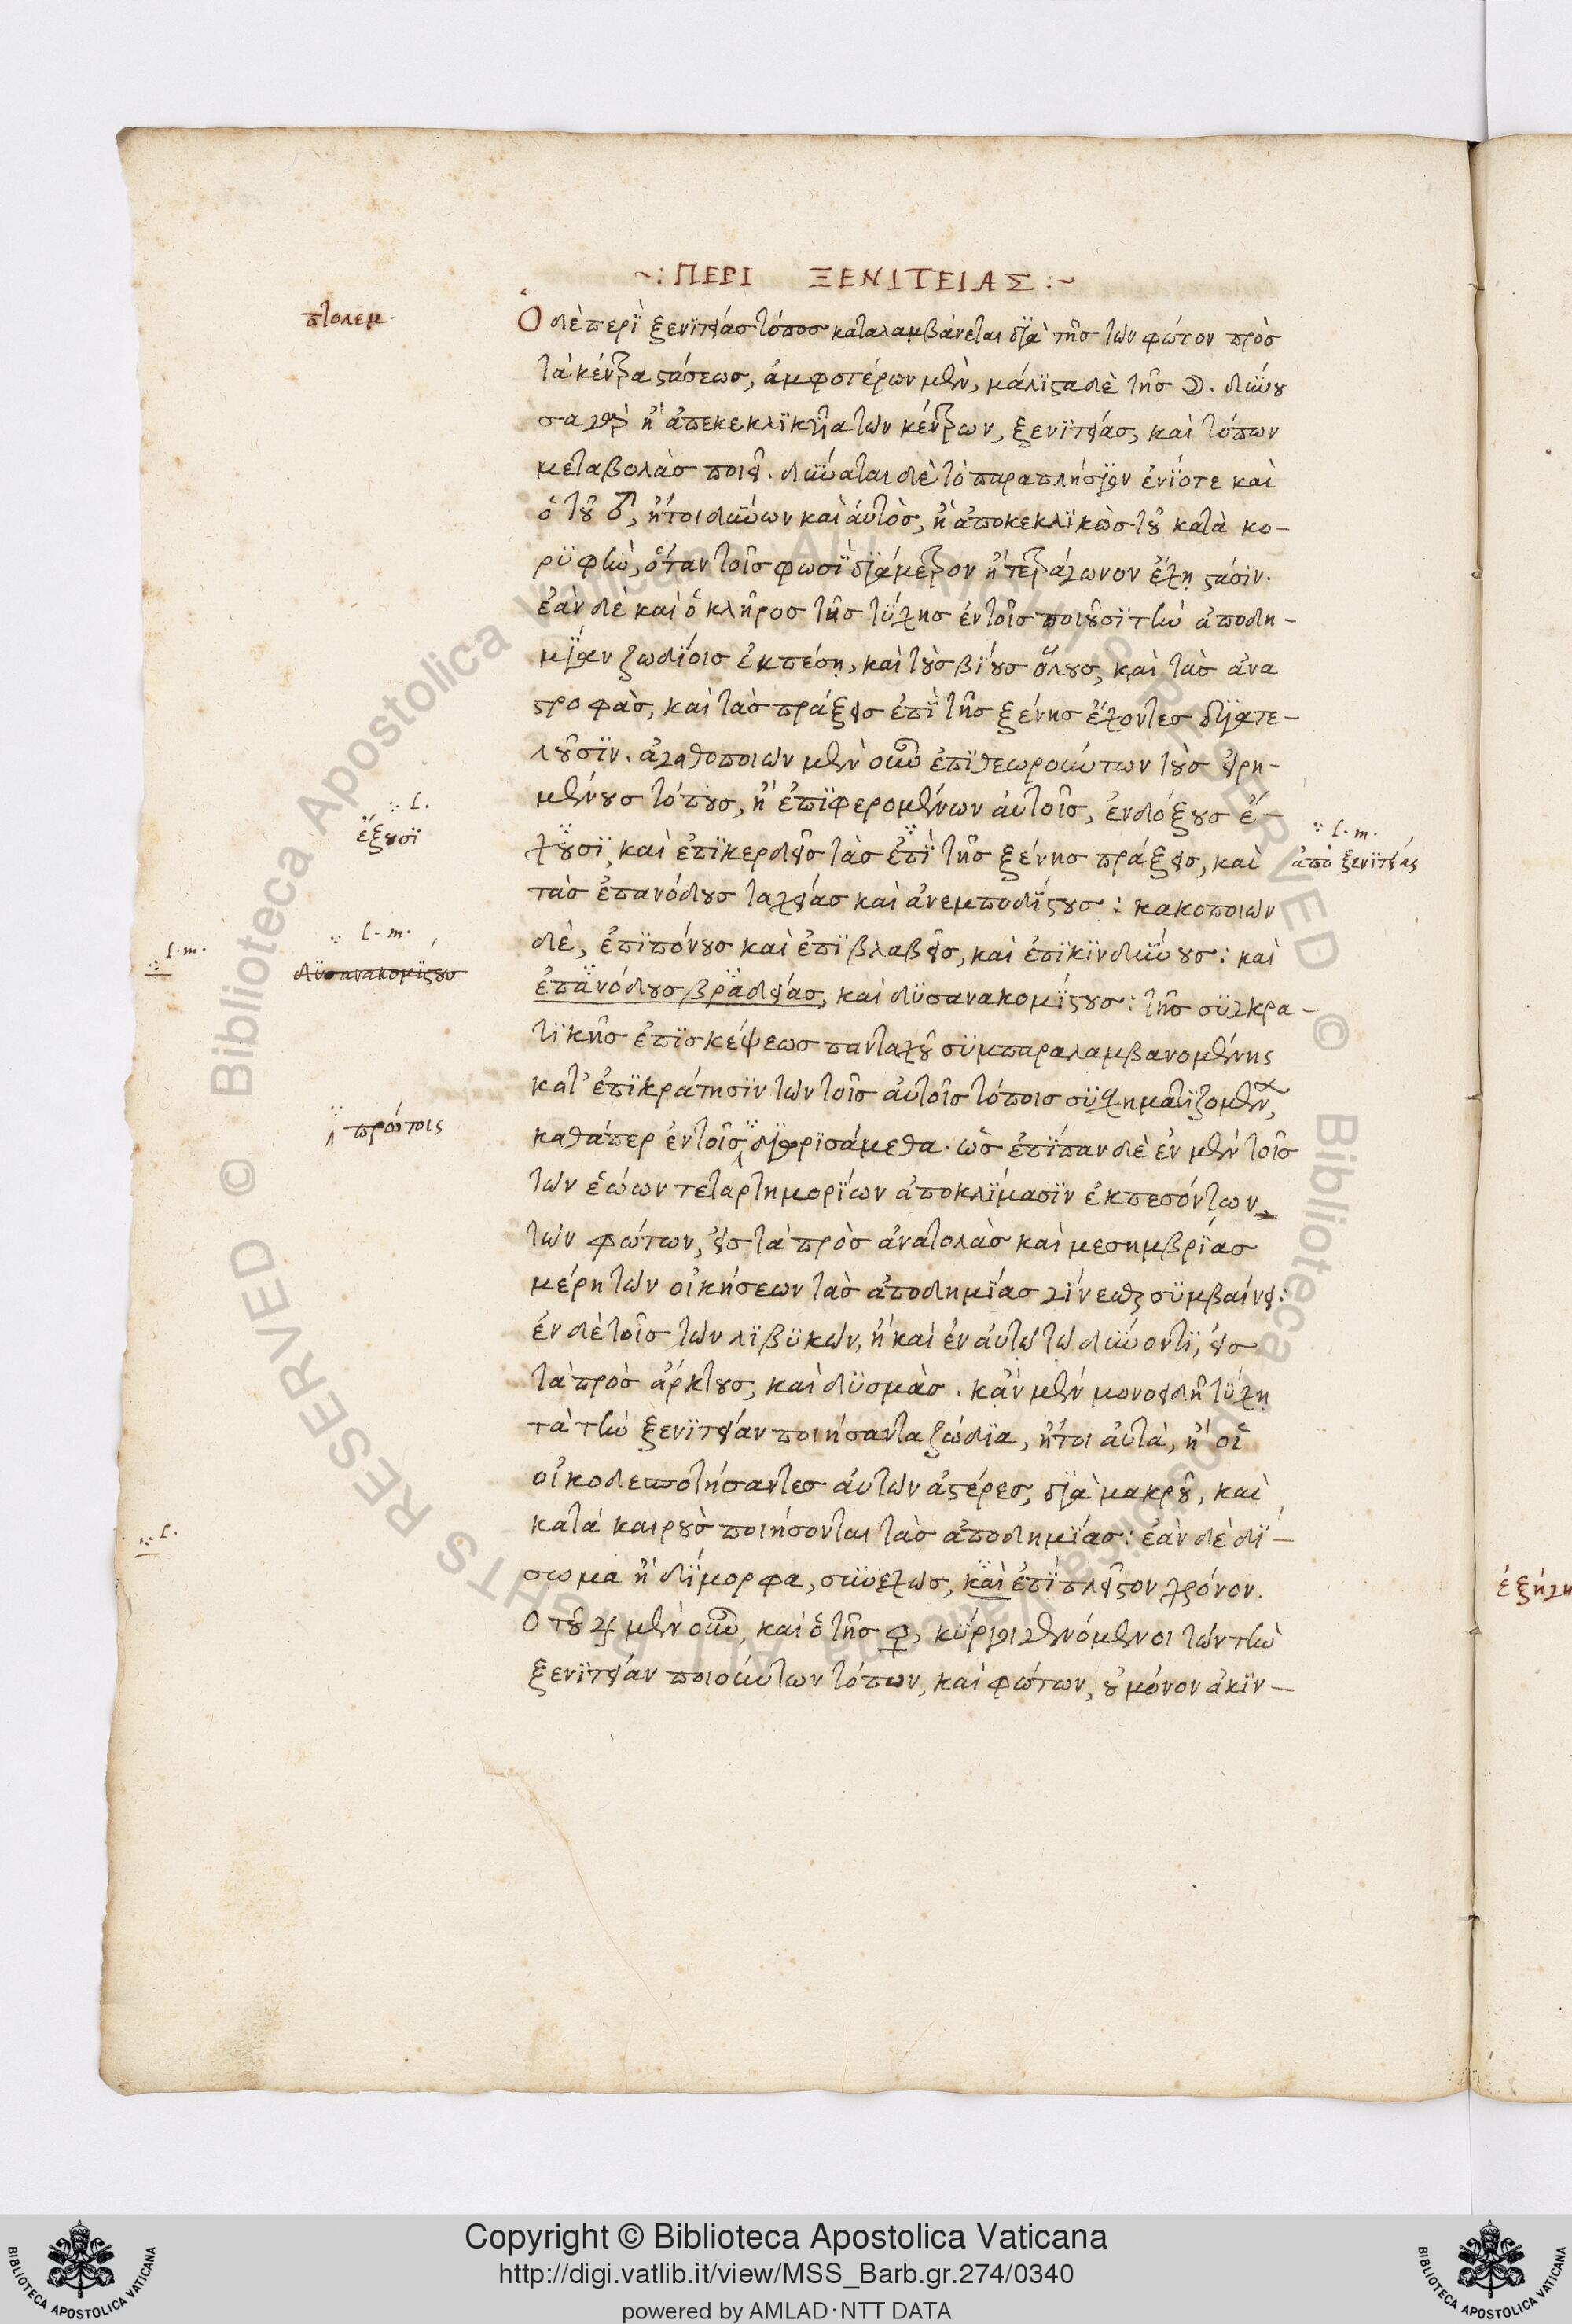 ~: ΠΕΡΙ ΞΕΝΙΤΕΙΑΣ :~
πτολεμ.
Ὁ δὲ περῒ ξενϊτείας τόπος καταλαμβάνεται δϊὰ τῆς τῶν φώτον πρὸς
τὰ κέντρα στάσεως, ἀμφοτέρων μὲν, μάλϊστα δὲ τῆς ☽. δύνου
σα γὰρ ἢ ἀπεκεκλϊκυῖα τῶν κέντρων, ξενϊτείας, καὶ τόπων
μεταβολὰς ποιεῖ. δύναται δὲ τὸ παραπλήσϊον ἐνΐοτε καὶ
ὁ τοῦ ♂, ἤτοι δύνων καὶ αὐτὸς, ἢ ἀποκεκλϊκὼς τοῦ κατὰ κο-
ρϋφὴν, ὅταν τοῖς φωσῒ δϊάμετρον ἢ τετράγωνον ἔχῃ στάσϊν.
ἐὰν δὲ καὶ ὁ κλῆρος τῆς τύχης ἐν τοῖς ποιοῦσϊ τὴν ἀποδη-
μΐαν ζωδΐοις ἐκπέσῃ, καὶ τοὺς βΐους ὅλους, καὶ τὰς ἀνα
στροφὰς, καὶ τὰς πράξεις ἐπῒ τῆς ξένης ἔχοντες δϊατε-
λοῦσϊν. ἀγαθοποιῶν μὲν οὖν ἐπϊθεωρούντων τοὺς εἰρη-
μένους τόπους, ἢ ἐπϊφερομένων αὐτοῖς, ἐνδόξους ἕ-
∵ l.
ἕξουσϊ
χουσϊ, καὶ ἐπϊκερδεῖς τὰς ἐπῒ τῆς ξένης πράξεις, καὶ
∵ l. m.
ἀπὸ ξενϊτείας
τὰς ἐπανόδους ταχείας καὶ ἀνεμποδΐστους: κακοποιῶν
δὲ, ἐπϊπόνους καὶ ἐπϊβλαβεῖς, καὶ ἐπϊκϊνδύνους: καὶ
∵ l. m.
∵ l. m.
δϋσανακομΐστους
ἐπανόδους βραδείας, καὶ δϋσανακομΐστους: τῆς σϋγκρα-
τϊκῆς ἐπϊσκέψεως πανταχοῦ σϋμπαραλαμβανομένης
κατ' ἐπϊκράτησϊν τῶν τοῖς αὐτοῖς τόποις σϋσχηματϊζομένων,
∵ πρώτοις
καθάπερ ἐν τοῖς δϊωρϊσάμεθα. ὡς ἐπΐπαν δὲ ἐν μὲν τοῖς
τῶν ἑώων τεταρτημορΐων ἀποκλΐμασϊν ἐκπεσόντων
τῶν φώτων, εἰς τὰ πρὸς ἀνατολὰς καὶ μεσημβρΐας
μέρη τῶν οἰκήσεων τὰς ἀποδημΐας γΐνεσθαι σϋμβαίνει:
ἐν δὲ τοῖς τῶν λϊβϋκῶν, ἢ καὶ ἐν αὐτῷ τῷ δύνοντϊ, εἰς
τὰ πρὸς ἄρκτους, καὶ δϋσμὰς. κἂν μὲν μονοειδῆ τύχῃ
τὰ τὴν ξενϊτείαν ποιήσαντα ζώδϊα, ἤτοι αὐτὰ, ἢ οἱ
οἰκοδεσποτήσαντες αὐτῶν ἀστέρες, δϊὰ μακροῦ, καὶ
κατὰ καιροὺς ποιήσονται τὰς ἀποδημΐας: ἐὰν δὲ δΐ-
∵ l.
σωμα ἢ δΐμορφα, συνεχῶς, καὶ ἐπῒ πλεῖστον χρόνον.
Ὁ τοῦ ♃ μὲν οὖν, καὶ ὁ τῆς ♀, κΰριοι γενόμενοι τῶν τὴν
ξενϊτείαν ποιούντων τόπων, καὶ φώτων, οὐ μόνον ἀκϊν-
Copyright © Biblioteca Apostolica Vaticana
http://digi.vatlib.it/view/MSS_Barb.gr.274/0340
powered by AMLAD·NTT DATA